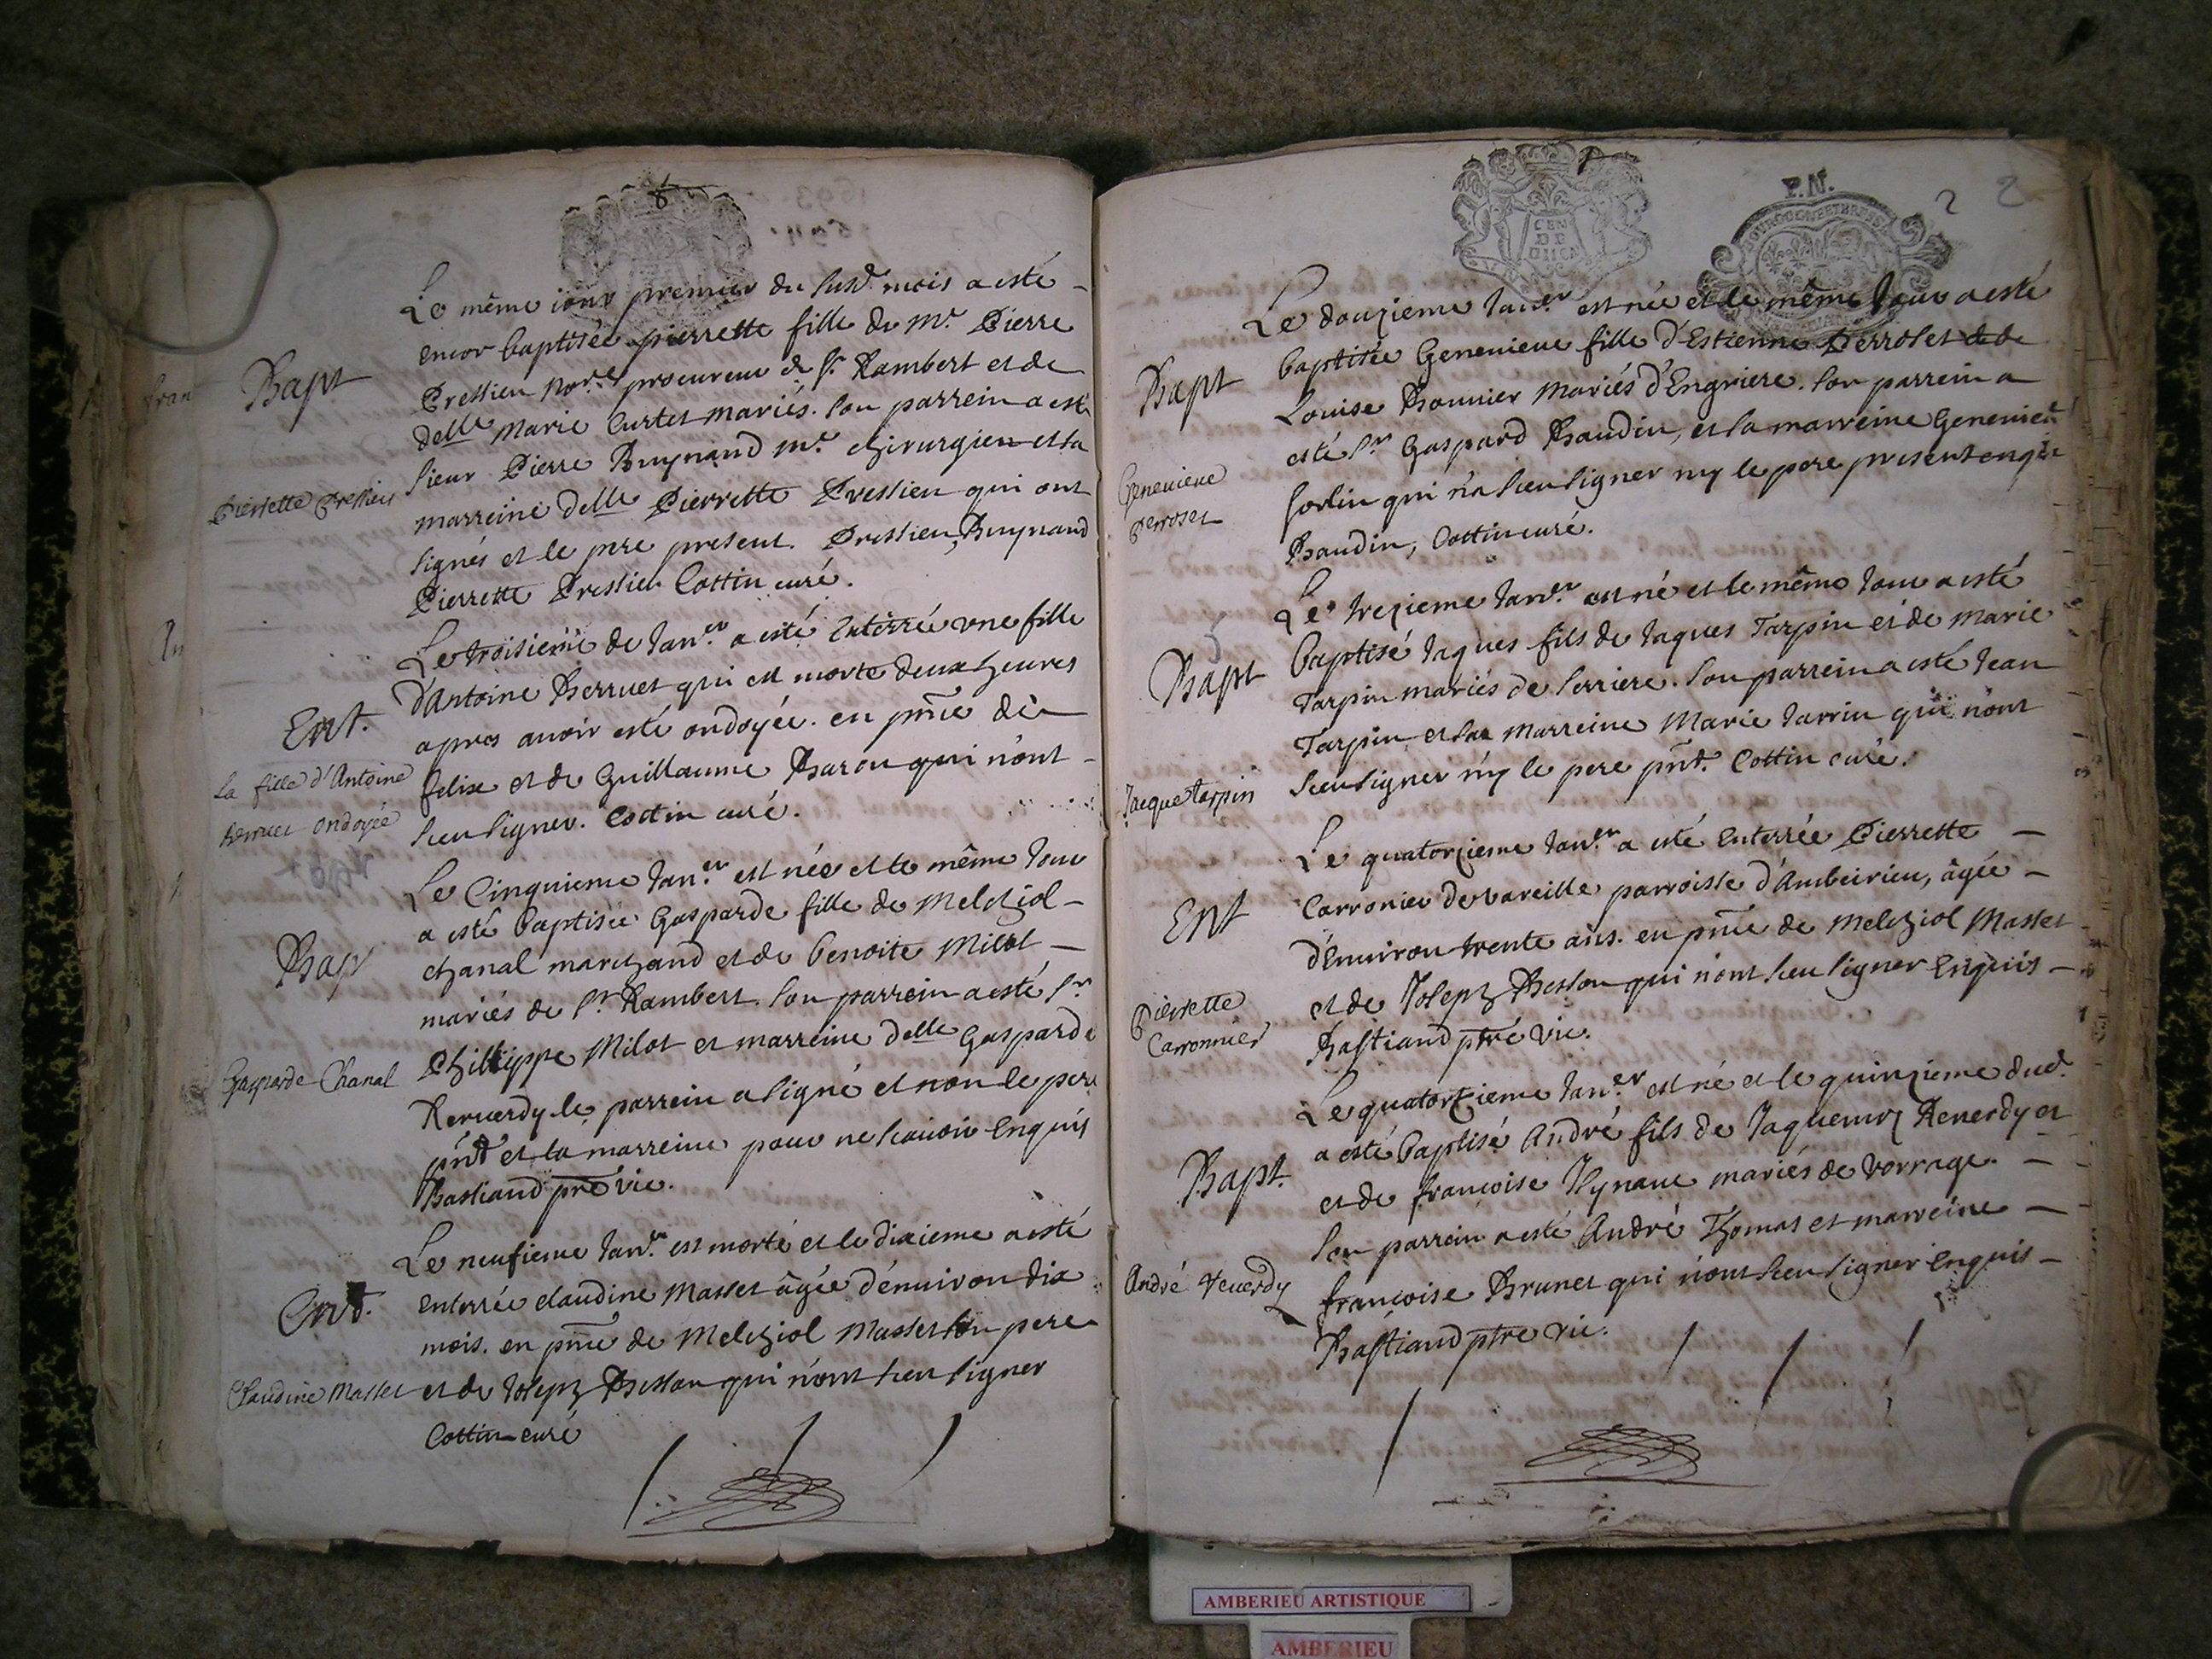 Le même iour premier du susd. mois a esté
encor baptisée pierrette fille de Mr. Pierre
Pressieu Nore. procureur de St. Rambert et de
delle Marie Curtet mariés. son parrein a esté
sieur Pierre Buynand mr. chirurgien et sa
marreine delle Pierrette Pressieu qui ont
signés et le pere present. Pressieu, Buynand
Pierrette Pressieu Cottin curé.
Bapt
Pierrette Pressieu
Le troisieme de Janer. a esté enterrée une fille
d'Antoine Berruet qui est morte deux heures
apres auoir esté ondoyée. en pnce de
felix et de Guillaume Baron qui n'ont
sceu signer. Cottin curé.
Ent.
la fille d'Antoine
Berruet ondoyée
Le Cinquieme Janer. est née et le même Jour
a esté baptisée Gasparde fille de Melchiol
chanal marchand et de benoite Milot
mariés de St. Rambert. son parrein a esté sr.
Phillippe Milot et marreine delle Gasparde
Reruerdy le parrein a signé et non le pere
pnt et la marreine pour ne scauoir enquis
Bastiand pre vic.
Bap
Gasparde Chanal
Le neufieme Janer. est morte et le dixieme a esté
enterrée claudine Masset âgée d'enuiron dix
mois. en pnce de Melchiol Masset son pere
et de Joseph Besson qui n'ont sceu signer
Cottin curé
Ent.
Claudine Masset
P.N.
2 2
CEN
DE
BOURGOGNE ET BRESSE
Le douzieme Janer. est née et le même Jour a esté
baptisée Geneuieue fille d'Estienne Perroset et de
Louise Bonnier Mariés d'Engriere. son parrein a
esté sr. Gaspard Baudin, et la marreine Geneuieu
Gorlin qui n'a sceu signer ny le pere present enquis
Baudin, Cottin curé.
Bapt
Geneuieue
Perroset
Le trezieme Janer. est né et le même Jour a esté
baptisé Jaques fils de Jaques Tarpin et de Marie
Tarpin mariés de Serriere. son parrein a esté Jean
Tarpin et sa Marreine Marie Jarrin qui n'ont
sceu signer n'y le pere pnt. Cottin curé.
Bapt
Jacque tarpin
Le quatorzieme Janer. a esté enterrée Pierrette
Carronier de vareille parroisse d'Ambeirieu, âgée
d'Enuiron trente ans. en pnce de Melchiol Masset
et de Joseph Besson qui n'ont sceu signer Enquis
Bastiand ptre vic.
Ent
Pierrette
Carronnier
Le quatorzieme Janer. est né et le quinzieme dud.
a esté baptisé André fils de Jaquemoz Reuerdy et
et de francoise mariés de vorrage.
son parrein a esté André Thomas et marreine
francoise Brunet qui n'ont sceu signer enquis
Bastiand ptre vic.
Bapt.
André reuerdy
AMBERIEU ARTISTIQUE
AMBERIEU